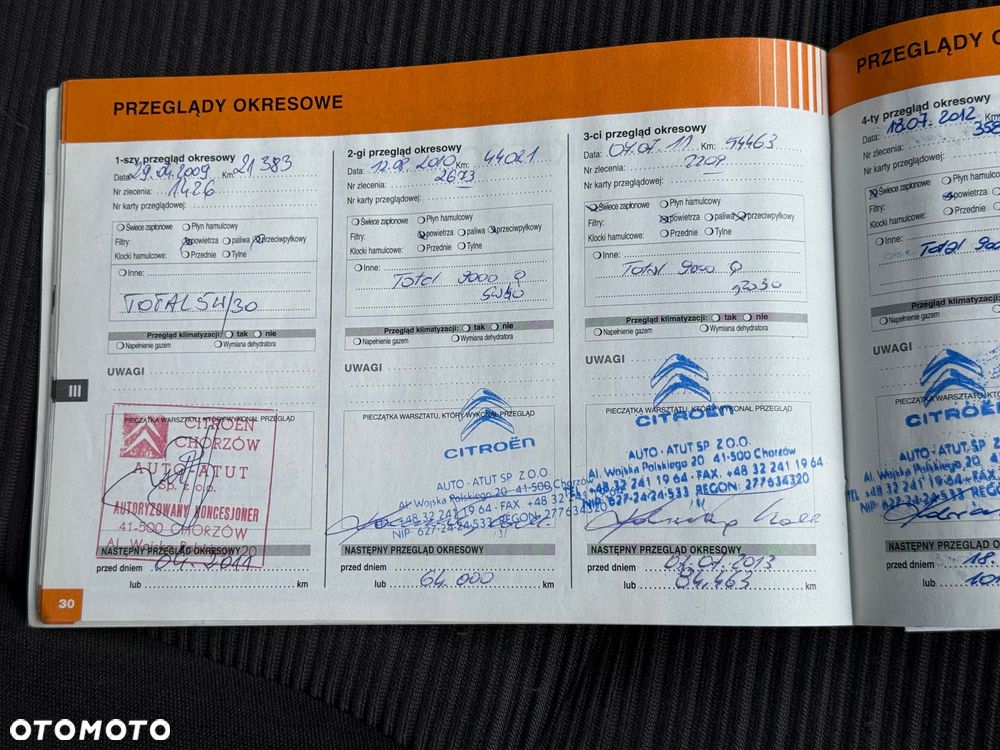 PRZEGLĄDY OKRESOWE
1-szy przegląd okresowy
Data: 29.04.2009 Km: 21 383
Nr zlecenia: 1426
Nr karty przeglądowej:
Świece zapłonowe Płyn hamulcowy
Filtry: powietrza paliwa przeciwpyłkowy
Klocki hamulcowe: Przednie Tylne
Inne:
TOTAL 5W/30
Przegląd klimatyzacji: tak nie
Napełnienie gazem Wymiana dehydratora
UWAGI
PIECZĄTKA WARSZTATU, KTÓRY WYKONAŁ PRZEGLĄD
CITROËN
CHORZÓW
AUTO-ATUT
Sp. z o.o.
AUTORYZOWANY KONCESJONER
41-500 CHORZÓW
Al. Wojska Polskiego 20
NASTĘPNY PRZEGLĄD OKRESOWY
przed dniem 04.2011
lub km
2-gi przegląd okresowy
Data: 12.08.2010 Km: 44021
Nr zlecenia: 2673
Nr karty przeglądowej:
Świece zapłonowe Płyn hamulcowy
Filtry: powietrza paliwa przeciwpyłkowy
Klocki hamulcowe: Przednie Tylne
Inne:
Total 9000 Q
5W40
Przegląd klimatyzacji: tak nie
Napełnienie gazem Wymiana dehydratora
UWAGI
PIECZĄTKA WARSZTATU, KTÓRY WYKONAŁ PRZEGLĄD
CITROËN
AUTO - ATUT SP. Z O.O.
Al. Wojska Polskiego 20 41-500 Chorzów
+48 32 241 19 64 - FAX. +48 32
NIP: 627-24-24-533 REGON: 277634320
NASTĘPNY PRZEGLĄD OKRESOWY
przed dniem
lub 64.000 km
3-ci przegląd okresowy
Data: 07.07.11 Km: 54463
Nr zlecenia: 2209
Nr karty przeglądowej:
Świece zapłonowe Płyn hamulcowy
Filtry: powietrza paliwa przeciwpyłkowy
Klocki hamulcowe: Przednie Tylne
Inne:
Total 9000 Q
5W30
Przegląd klimatyzacji: tak nie
Napełnienie gazem Wymiana dehydratora
UWAGI
PIECZĄTKA WARSZTATU, KTÓRY WYKONAŁ PRZEGLĄD
CITROËN
AUTO - ATUT SP. Z O.O.
Al. Wojska Polskiego 20 41-500 Chorzów
TEL. +48 32 241 19 64 - FAX. +48 32 241 19 64
NIP: 627-24-24-533 REGON: 277634320
NASTĘPNY PRZEGLĄD OKRESOWY
przed dniem 07.07.2013
lub 84.463 km
III
30
PRZEGLĄDY
4-ty przegląd okresowy
Data: 18.07.2012 Km:
Nr zlecenia:
Nr karty przeglądowej:
Świece zapłonowe Płyn hamulcowy
Filtry: powietrza
Klocki hamulcowe: Przednie
Inne:
Total
Przegląd klimatyzacji:
Napełnienie gazem
UWAGI
PIECZĄTKA WARSZTATU, KTÓRY
CITROËN
AUTO - ATUT SP.
Al. Wojska Polskiego 20
TEL. +48 32 241 19 64 - FAX.
NIP: 627-24-24-533
NASTĘPNY PRZEGLĄD
przed dniem 18.
lub
OTOMOTO